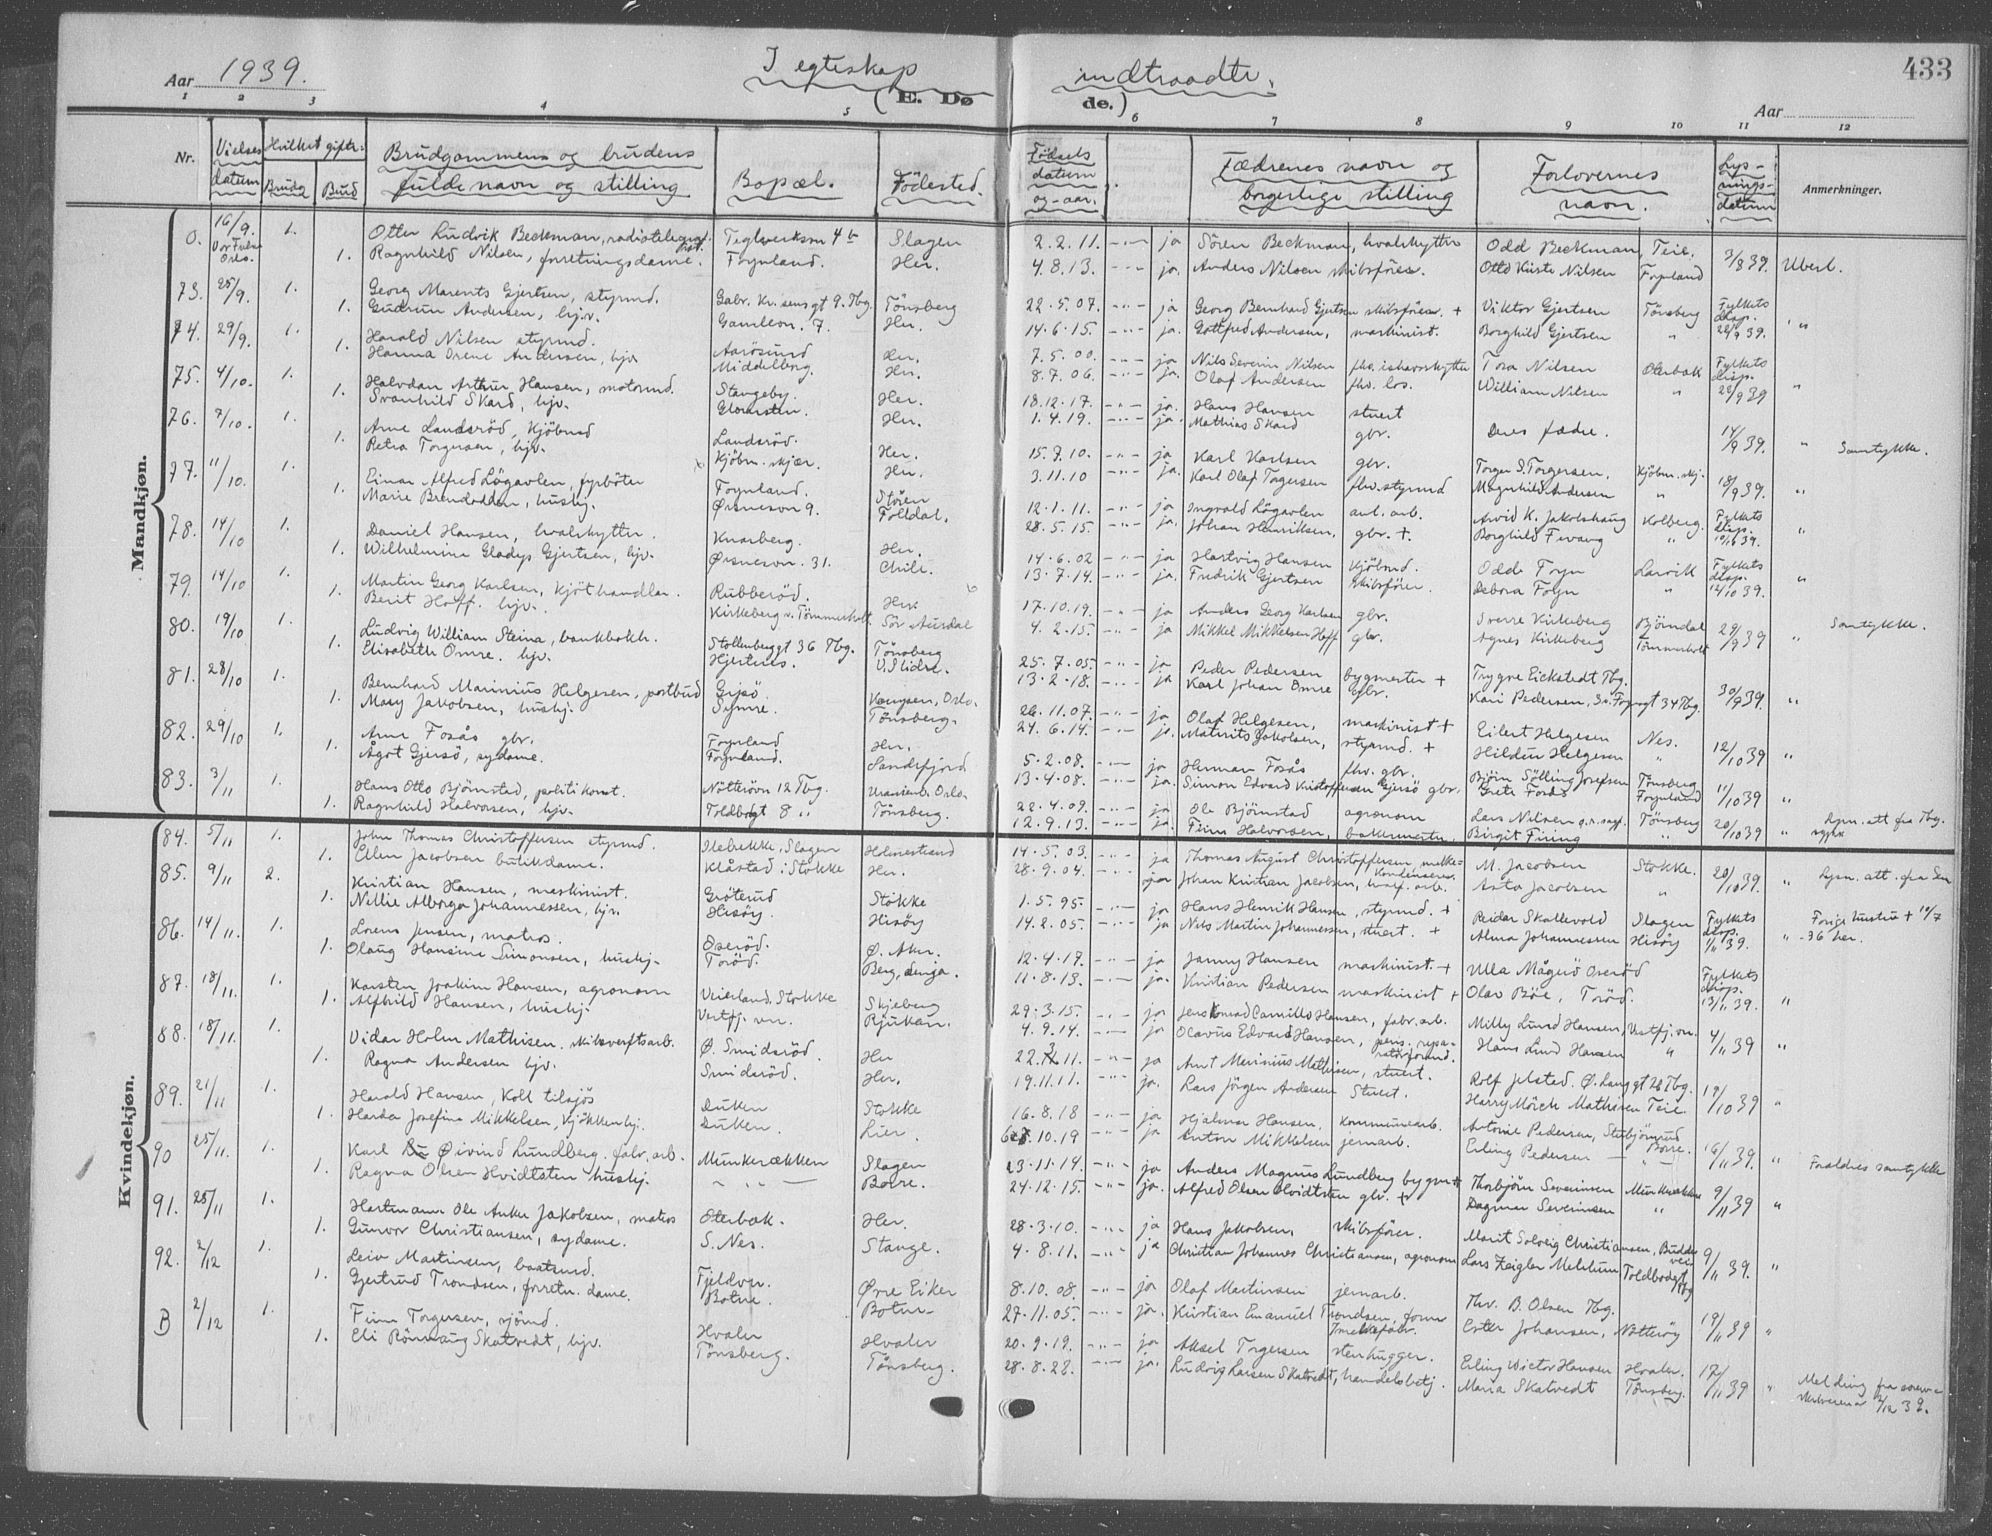 433
Aar 1939.
I egteskap indtraadte.
(E. Døde.)
Aar
1 2 3 4 5 6 7 8 9 10 11 12
Nr. Vielses datum Hvilket gifte: Brudg Brud Brudgommens og brudens fulde navn og stilling Bopæl. Fødested. Fødsels datum og -aar. Fædrenes navn og borgerlige stilling Forlovernes navn. Lysningsdatum Anmerkninger.
Mandkjøn.
0. 16/9. Vor Frelse Oslo. 1. Otto Ludvik Beckman, radiotelegraf. Teglverksvn 4 b Slagen 2.2.11. -"- ja Sören Beckman, hvalskytter Odd Beckman, Teie. 3/8 39. Uberl.
1. Ragnhild Nilsen, forretningsdame. Föynland. Her. 4.8.13. -"- ja. Anders Nilsen skibsfører. Otto Kiste Nilsen Föynland
73. 25/9. 1. Georg Marents Gjertsen, styrmd. Gabr. Kr.sens gt 9. Tbg. Tönsberg 22.5.07. -"- ja Georg Bernhard Gjertsen skibsfører + Viktor Gjertsen Tönsberg Fylkets disp. 20/9 39. "
1. Gudrun Andersen, hjv. Gamleon. 7. Her. 14.6.15. -"- ja. Gottfred Andersen, maskinist. Borghild Gjertsen "
74. 29/9. 1. Harald Nilsen styrmd. Aarösund Her. 7.5.00. -"- ja Nils Severin Nilsen fhv. ishavsskytter Tora Nilsen Oterbak Fylkets disp. 22/9 39 "
1. Hanna Irene Andersen, hjv. Middelborg. Her. 8.7.06. -"- ja. Olaf Andersen fhv. los. William Nilsen "
75. 4/10. 1. Halvdan Arthur Hansen, motormd. Stangeby. Her. 18.12.17. -"- ja. Hans Hansen stuert Deres fædre. 14/9 39. " Samtykke.
1. Svanhild Skard, hjv. Glomsten. Her. 1.4.19. -"- ja. Mathias Skard gbr.
76. 7/10. 1. Arne Landsröd, Kjöbmd Landsröd. Her. 15.7.10. -"- ja Karl Karlsen gbr. Torger S. Torgersen, Kjöbm. skj. 18/9 39. "
1. Petra Torgersen, hjv. Kjöbm. skjær. Her. 3.11.10 ja. Karl Olaf Torgersen fhv. styrmd Magnhild Andersen "
77. 11/10. 1. Einar Alfred Lögavlen, fyrböter Föynland. Stören 12.1.11. -"- ja Ingvald Lögavlen anl. arb. Arvid K. Jakobshaug Kolberg. Fylkets disp. 10/6 39. "
1. Marie Brendodden, hushj. Ørsnesvn 9. Folldal. 28.5.15. -"- ja. Johan Henriksen, gbr. +. Borghild Fevang "
78. 14/10 1. Daniel Hansen, hvalskytter. Knarberg. Her. 14.6.02 -"- ja Hartvig Hansen Kjöbmd. Odd Foyn Larvik Fylkets disp. 12/10 39. "
1. Wilhelmine Gladys Gjertsen, hjv. Ørsnesvn. 31. Chile. 13.7.14. -"- ja. Fredrik Gjertsen skibsfører. Debora Foyn "
79. 14/10 1. Martin Georg Karlsen, Kjöthandler. Rubberöd. Her. 17.10.19. -"- ja Anders Georg Karlsen gbr. Sverre Kirkeberg Björndal 29/9 39 " Samtykke.
1. Berit Hoff. hjv. Kirkeberg v. Tömmerholt. Sör Aurdal 4.2.15. -"- ja Mikkel Mikkelsen Hoff gbr. Agnes Kirkeberg Tömmerholt
80. 19/10 1. Ludvig William Steina, bankbokh. Stoltenberggt 36 Tbg. Tönsberg 25.7.05. -"- ja Peder Pedersen bygmester + Trygve Eickstedt Tbg. 30/9 39. "
1. Elisabeth Omre. hjv. Hjertnes. V. Slidre. 13.2.18. -"- ja Karl Johan Omre gbr. Kari Pedersen, Sv. Foyns gt 34 Tbg.
81. 28/10 1. Bernhard Marinius Helgesen, postbud Gipsö. Kampen, Oslo. 26.11.07. -"- ja Olaf Helgesen, maskinist + Eilert Helgesen Nes. 12/10 39 "
1. Mary Jakobsen, hushj. Symre. Tönsberg. 24.6.14. -"- ja. Mauritz Jakobsen, styrmd. + Hildur Helgesen "
82. 29/10 1. Arne Fosås gbr. Föynland Her. 5.2.08. -"- ja Herman Fosås fhv. gbr. Björn Sölling Josefsen Tönsberg 11/10 39 "
1. Ågot Gjersö, sydame. Föynland. Sandefjord 13.4.08. -"- ja. Simon Edvard Kristoffersen Gjersö gbr. Grete Fosås Föynland
83. 3/11 1. Hans Otto Björnstad, politikonst. Nötteröyv 12 Tbg. Uranienb. Oslo. 22.4.09. -"- ja Ole Björnstad agronom Lars Nilsen g.r. sagf. Tönsberg 20/10 39 " Lysn. att fra Tbg.
1. Ragnhild Halvorsen, hjv. Toldbogt 8 " Tönsberg. 12.9.13. -"- ja. Finn Halvorsen, bakermester. Birgit Firing "
Kvindekjøn.
84. 5/11 1. John Thomas Christoffersen styrmd. Ilebekke, Slagen Holmestrand 14.5.03. -"- ja Thomas August Christoffersen, melkekondensern. M. Jacobsen Stokke. 20/10 39. " Lysn. att. fra Sem
1. Ellen Jacobsen butikdame. Klåstad i Stokke Her. 28.9.04. -"- ja Johan Kristian Jacobsen, hvalf. arb. Asta Jacobsen "
85. 9/11 2. Kristian Hansen, maskinist. Gröterud Stokke 1.5.95. -"- ja Hans Henrik Hansen, styrmd. + Reidar Skallevold Slagen Fylkets disp. 1/11 39. " Forige hustru + 10/7 -36 her.
1. Nillie Alborga Johannessen, hjv. Hisöy Hisöy 14.2.05. -"- ja Nils Martin Johannessen, stuert. + Alma Johannessen Hisöy
86. 14/11. 1. Lorens Jensen, matros. Oseröd. Ø. Aker. 12.4.17. -"- ja Janny Hansen maskinist. + Ulla Mågerö Oseröd Fylkets disp. 13/11 39. "
1. Olaug Hansine Simonsen, hushj. Toröd. Berg, Senja. 11.8.13. -"- ja. Kristian Pedersen maskinist + Olav Böe, Toröd.
87. 18/11. 1. Karsten Joakim Hansen, agronom Veierland, Stokke Skjeberg 29.3.15. -"- ja Jens Konrad Camillo Hansen, fabr. arb. Milly Lund Hansen, Vestfj.vn. 4/11 39 "
1. Alfhild Hansen, hushj. Vestfj. vn. Rjukan. 4.9.14. -"- ja Olavus Edvard Hansen, pens. reparatörformd. Hans Lund Hansen "
88. 18/11. 1. Vidar Holm Mathisen. skibsverftsarb. Ø. Smidsröd. Her 22.3.11. -"- ja Arnt Marinius Mathisen, stuert. Rolf Jelstad. Ø. Langgt 28 Tbg. 19/10 39 "
1. Ragna Andersen hjv. Smidsröd. Her. 19.11.11. -"- ja. Lars Jörgen Andersen Stuert. Harry Mörch Mathisen Teie
89. 21/11 1. Harald Hansen, Kokk tilsjös Duken Stokke 16.8.18 -"- ja Hjalmar Hansen, kommunearb. Antonie Pedersen, Stubjörnrud Borre. 16/11 39. " Foreldres samtykke
1. Harda Josefine Mikkelsen, Kjökkenhj. Duken. Lier. 10.19 -"- ja Anton Mikkelsen jernarb. Erling Pedersen — " —
90 25/11. 1. Karl Øivind Lundberg. fabr. arb. Munkerækken Slagen 23.11.14. -"- ja Anders Magnus Lundberg bygm + Thorbjörn Severinsen Munkerække 9/11 39 "
1. Ragna Olsen Hvidtsten hushj. — " — Borre. 24.12.15. -"- ja. Alfred Olsen Hvidtsten gbr. + Dagmar Severinsen "
91. 25/11 1. Hartmann Ole Anker Jakobsen, matros Oterbak. Her. 28.3.10. -"- ja Hans Jakobsen, skibsfører. Marit Solveig Christiansen, Buddevei 9/11 39. "
1. Gunvor Christiansen, sydame. S. Nes. Stange. 4.8.11. -"- ja Christian Johannes Christiansen, agronom Lars Zeigler Melsum Toldbodgt Tbg
92. 2/12 1. Leiv Martinsen, baatsmd. Fjeldvn. Øvre Eiker 8.10.08. -"- ja Olaf Martinsen jernarb. Thv. B. Olsen Tbg. 19/11 39 "
1. Gjertrud Trondsen, forretn. dame. Botne. Botne 27.11.05. -"- ja. Kristian Emanuel Trondsen, form Ester Johansen, Nötteröy
B 2/12 1. Finn Torgersen, sjömd. Hvaler Hvaler 20.9.19. -"- ja Aksel Torgersen stenhugger. Erling Wictor Hansen Hvaler. 17/11 39 " Melding fra soren-
1. Eli Rönnaug Skatvedt, hjv. Tönsberg. Tönsberg. 28.8.22. -"- ja. Ludvig Larsen Skatvedt, handelsbetj. Maria Skatvedt Tönsberg. skriveren av 2/12 39.